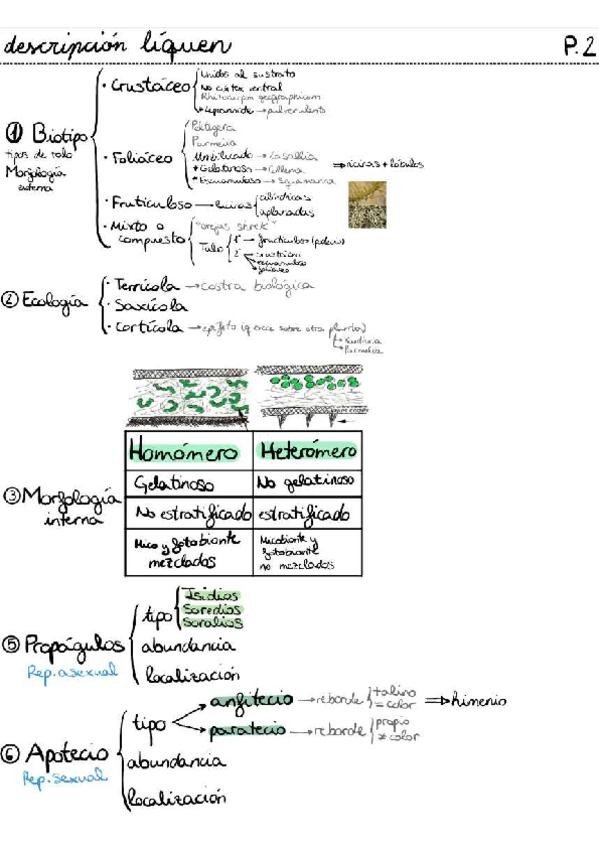 descripción líquen P.2
① Biotipo
tipos de talo
Morfología
externa
· Crustáceo
Unidos al sustrato
No córtex ventral
Rhizocarpon geographicum
Leparioide → pulverulento
· Foliáceo
Peltigera
Parmelia
Umbilicado → Lasallia
+ Gelatinoso → Collema
⇒ ricinas + lóbulos
· Fruticuloso → lacinias
cilíndricas
aplanadas
· Mixto o
compuesto
Talo
1º → fruticuloso (podecio)
2º
crustáceo
escamuloso
foliáceo
② Ecología
· Terrícola → costra biológica
· Saxícola
· Cortícola → epífito (q crece sobre otra planta)
Parmelia
③ Morfología
interna
Homómero Heterómero
Gelatinoso No gelatinoso
No estratificado estratificado
Mico y fotobionte
mezclados
Micobionte y
fotobionte
no mezclados
⑤ Propágulos
Rep. asexual
tipo
Isidios
Soredios
Soralios
abundancia
localización
⑥ Apotecio
Rep. sexual
tipo
anfitecio → reborde
talino
= color
⇒ himenio
paratecio → reborde
propio
≠ color
abundancia
localización